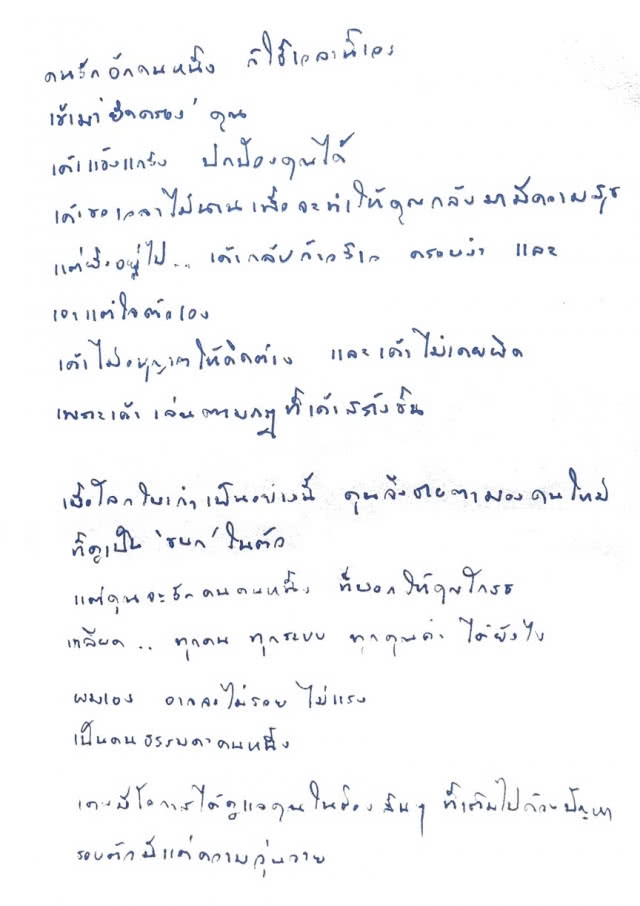 คนรักอีกคนหนึ่ง ก็ใช้เวลานี้เอง
เข้ามา 'ยึดครอง' คุณ
เค้าแข็งแกร่ง ปกป้องคุณได้
เค้าขอเวลาไม่นานเพื่อจะทำให้คุณกลับมามีความสุข
แต่ยิ่งอยู่ไป... เค้ากลับก้าวร้าว ครอบงำ และ
เอาแต่ใจตัวเอง
เค้าไม่อนุญาตให้คิดต่าง และเค้าไม่เคยผิด
เพราะเค้าเล่นตามกฎที่เค้าสร้างขึ้น
เมื่อโลกใบเก่าเป็นอย่างนี้ คุณจึงชายตามองคนใหม่
ที่ดูเป็น 'ขบถ' ในตัว
แต่คุณจะรักคนคนหนึ่ง ที่บอกให้คุณโกรธ
เกลียด.. ทุกคน ทุกระบบ ทุกคุณค่า ได้ยังไง
ผมเอง อาจจะไม่รวย ไม่แรง
เป็นคนธรรมดาคนหนึ่ง
เคยมีโอกาสได้ดูแลคุณในช่วงสั้นๆ ที่เต็มไปด้วยปัญหา
รอบตัวมีแต่ความวุ่นวาย